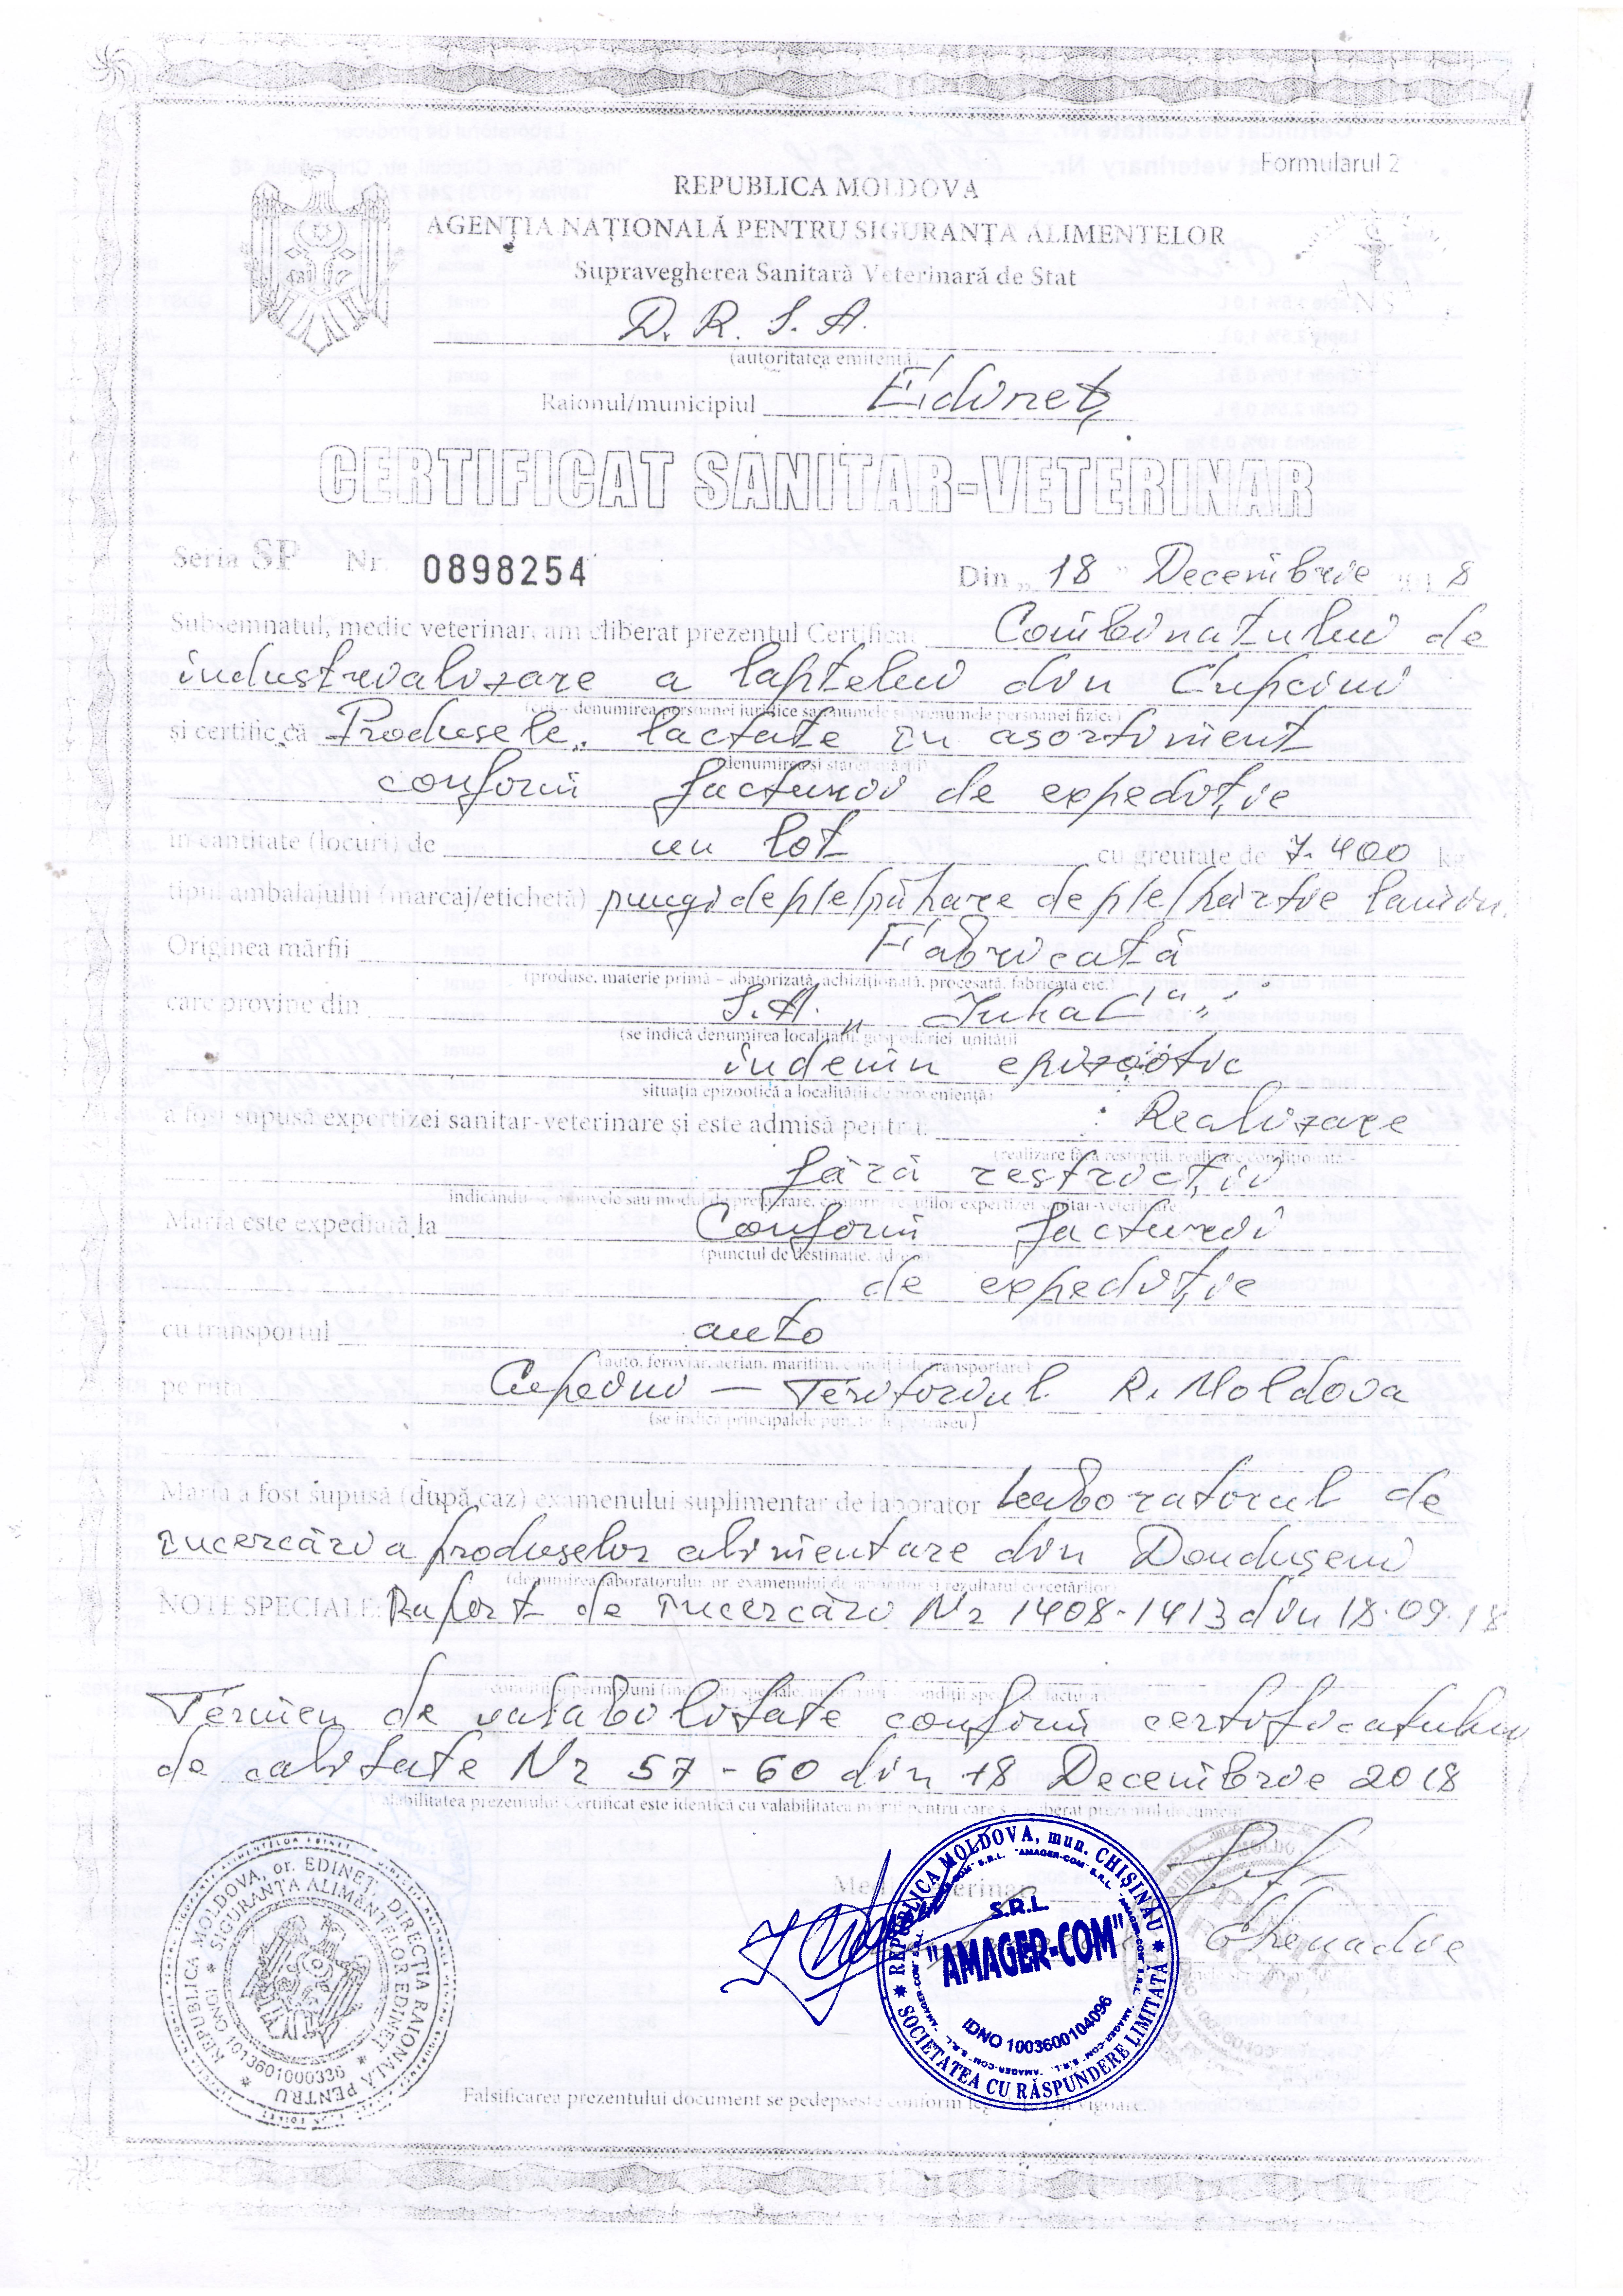 Formularul 2
REPUBLICA MOLDOVA
AGENȚIA NAȚIONALĂ PENTRU SIGURANȚA ALIMENTELOR
Supravegherea Sanitară Veterinară de Stat
D. R. S. A.
(autoritatea emitentă)
Raionul/municipiul Edineț
CERTIFICAT SANITAR-VETERINAR
Seria SP Nr. 0898254 Din „18" Decembrie 18
Subsemnatul, medic veterinar, am eliberat prezentul Certificat Combinatului de
industrializare a laptelui din Cupcini
(cui – denumirea persoanei juridice sau numele și prenumele persoanei fizice)
și certific că Produsele lactate în asortiment
(denumirea și starea mărfii)
conform facturii de expediție
în cantitate (locuri) de un lot cu greutate de 7.400 kg
tipul ambalajului (marcaj/etichetă) pungi de p/e/pahare de p/e/hârtie lamin.
Originea mărfii Fabricată
(produse, materie primă – abatorizată, achiziționată, procesată, fabricată etc.)
care provine din S.A. „
(se indică denumirea localității, gospodăriei, unității
indemn epizootic
situația epizootică a localității de proveniență)
a fost supusă expertizei sanitar-veterinare și este admisă pentru: Realizare
(realizare fără restricții, realizare condiționată –
fără restricții
indicându-se motivele sau modul de prelucrare, conform rezultatelor expertizei sanitar-veterinare)
Marfa este expediată la Conform facturii
(punctul de destinație, adresa)
de expediție
cu transportul auto
(auto, feroviar, aerian, maritim, condiții de transportare)
pe ruta Cupcini — Teritoriul R. Moldova
(se indică principalele puncte de traseu)
Marfa a fost supusă (după caz) examenului suplimentar de laborator Laboratorul de
încercări a produselor alimentare din Dondușeni
(denumirea laboratorului, nr. examenului de laborator și rezultatul cercetărilor)
NOTE SPECIALE: Raport de încercări Nr 1408-1413 din 18.09.18
Termen de valabilitate conform certificatului
de calitate Nr 57-60 din 18 Decembrie 2018
Valabilitatea prezentului Certificat este identică cu valabilitatea mărfii pentru care s-a eliberat prezentul document
Medic veterinar
Ghenadie
REPUBLICA MOLDOVA, or. EDINEȚ, DIRECȚIA RAIONALĂ PENTRU
SIGURANȚA ALIMENTELOR EDINEȚ
1013601000336
REPUBLICA MOLDOVA, mun. CHIȘINĂU
SOCIETATEA CU RĂSPUNDERE LIMITATĂ
S.R.L.
"AMAGER-COM"
IDNO 1003600104096
Falsificarea prezentului document se pedepsește conform legislației în vigoare.